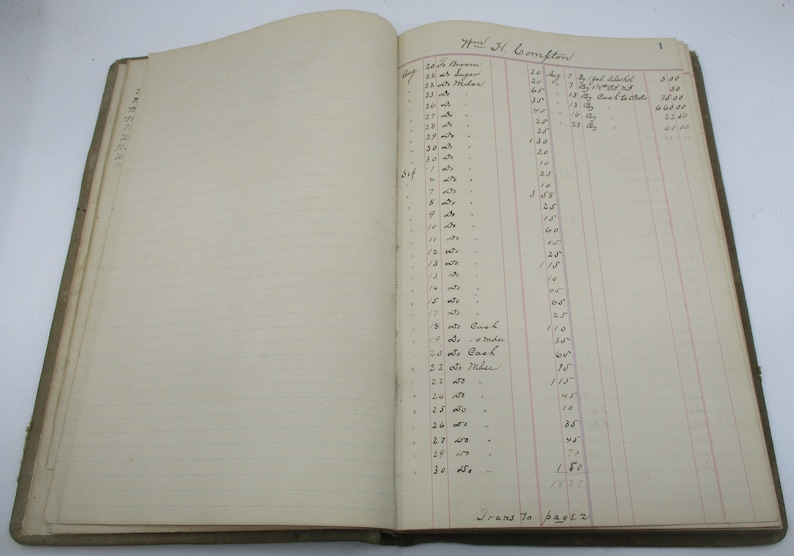 Wm H. Compton 1
Aug 20 To Broom 20 Aug 7 By 1 gal Alcohol 3 00
" 22 Do Sugar 20 " 7 By 30
" 22 Do Mdse 65 " 13 By Cash to 75 00
" 23 Do " 35 " 13 By 660.00
" 26 Do " 40 " 16 By " 22 50
" 27 Do " 25 " 23 By " 60.00
" 28 Do " 25
" 29 Do " 1 30
" 30 Do " 20
" 30 Do " 10
Sep 1 Do " 25
" 4 Do " 10
" 7 Do " 3 58
" 8 Do " 25
" 9 Do " 15
" 10 Do " 60
" 11 Do " 05
" 12 Do " 25
" 13 Do " 1 15
" 13 Do " 10
" 14 Do " 05
" 15 Do " 65
" 17 Do " 25
" 18 Do Cash 1 10
" 19 Do " & Mdse 35
" 20 Do Cash 65
" 22 Do Mdse 95
" 22 Do " 1 15
" 24 Do " 45
" 25 Do " 10
" 26 Do " 35
" 27 Do " 45
" 29 Do 70
" 30 Do " 1 50
18 28
Trans To page 2